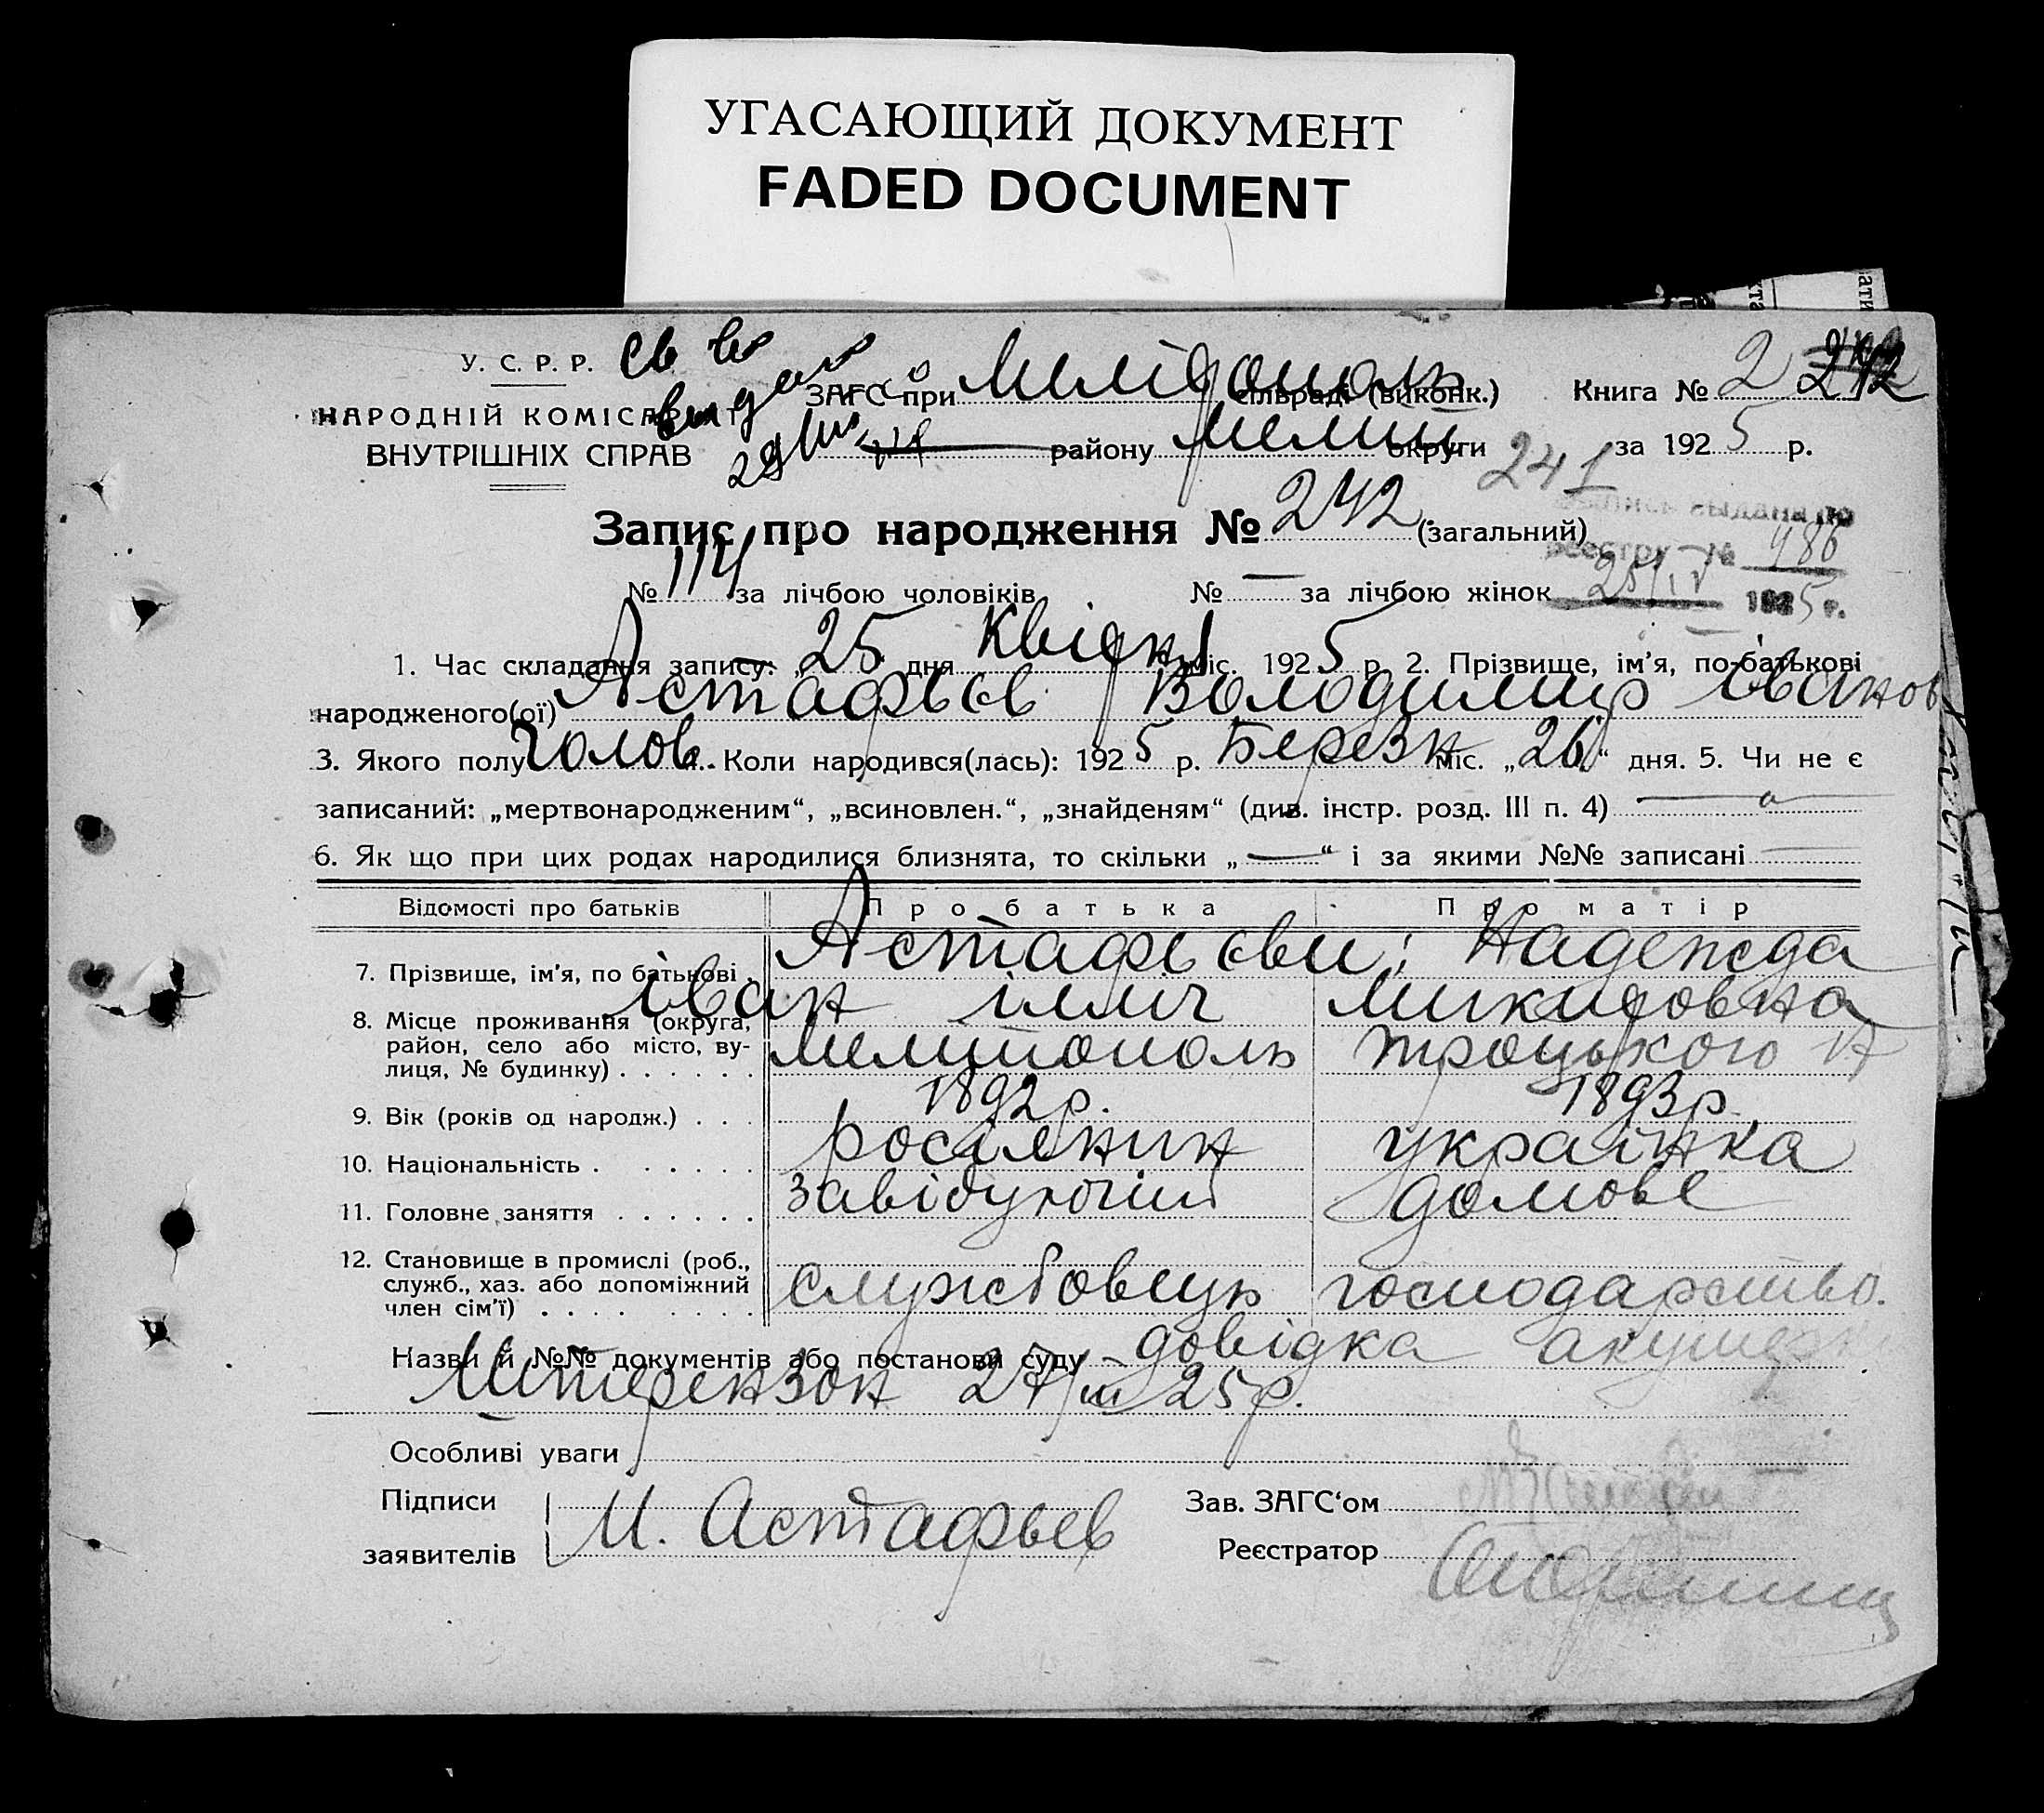 УГАСАЮЩИЙ ДОКУМЕНТ
FADED DOCUMENT
У. С. Р. Р.
НАРОДНІЙ КОМІСАРІЯТ
ВНУТРІШНІХ СПРАВ
св во
видано
ЗАГС при Меліtополь сільраді (виконк.) Книга № 2 242
району Мелит округи 241 за 1925 р.
Запис про народження № 242 (загальний)
реестру № 486
№ 114 за лічбою чоловіків № — за лічбою жінок
25/IV 1925 г.
1. Час складання запису: „25“ дня Квітня міс. 1925 р. 2. Прізвище, ім’я, по-батькові
народженого(ої) Астафьєв Володимир Іванов
3. Якого полу Чолов. Коли народився(лась): 1925 р. Березн міс. „26“ дня. 5. Чи не є
записаний: „мертвонародженим“, „всиновлен.“, „знайденям“ (див. інстр. розд. III п. 4)
6. Як що при цих родах народилися близнята, то скільки „—“ і за якими №№ записані —
Відомості про батьків Про батька Про матір
7. Прізвище, ім’я, по батькові Астафьєви: Надежда
Іван Ілліч Микитовна
8. Місце проживання (округа, район, село або місто, ву-
лиця, № будинку) Мелитополь Троцького
9. Вік (років од народж.) 1892 р. 1893 р.
10. Національність росіянин українка
11. Головне заняття завідуючий домове
12. Становище в промислі (роб.,
служб., хаз. або допоміжний
член сім’ї) службовець господарство.
Назви й №№ документів або постанови суду довідка акушерк
27/III 25 р.
Особливі уваги
Підписи
заявителів И. Астафьев
Зав. ЗАГС‘ом
Реєстратор